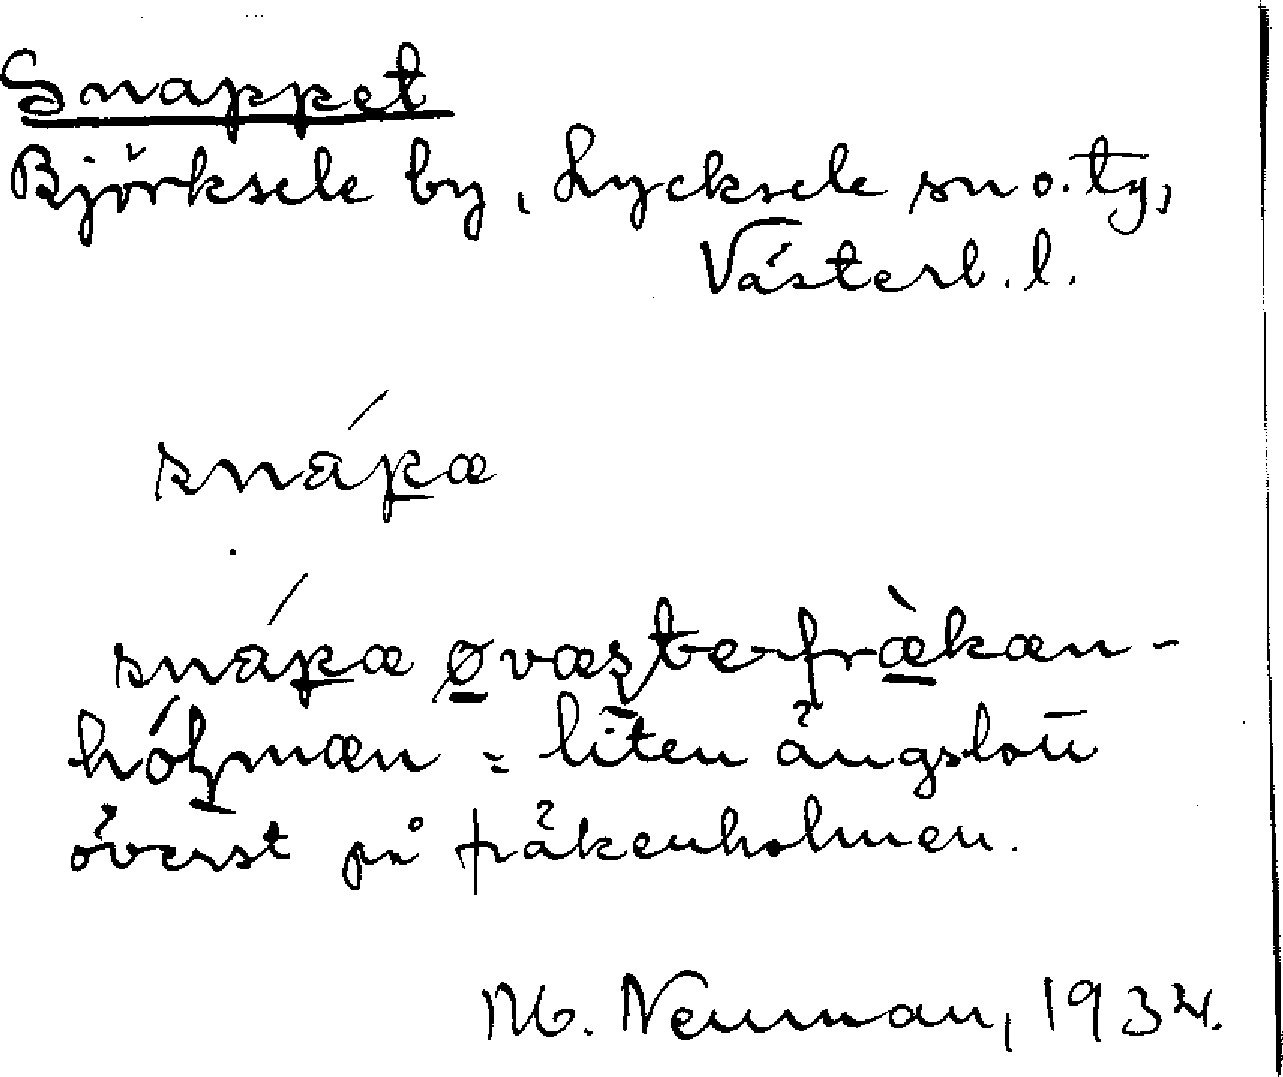 Snappet
Björksele by, Lycksele sn o. tg,
Västerb. l.
snápæ
snápæ øvæste fræ̀kæn-
hólmæn = liten ängslott
överst på fräkenholmen.
M. Neuman, 1934.